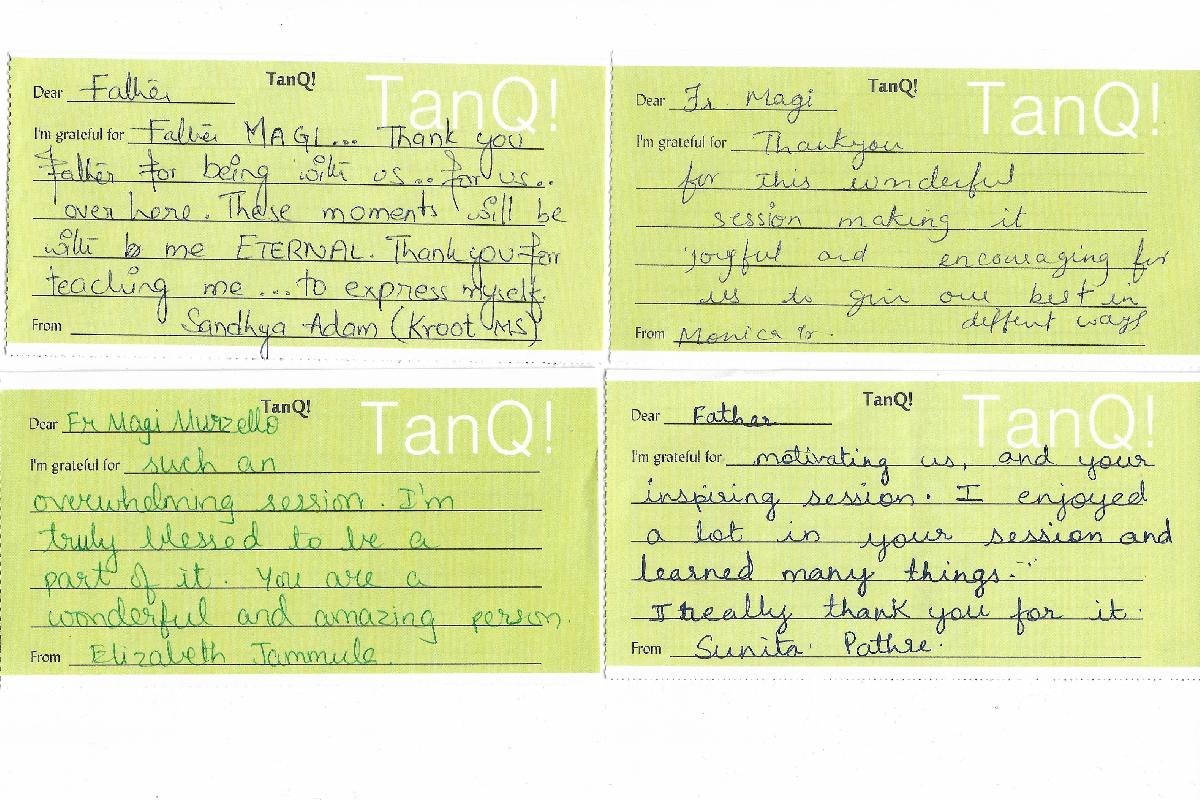 TanQ!
TanQ!
Dear Father
I'm grateful for Father MAGI... Thank you
Father for being with us.. for us..
over here. These moments will be
with me ETERNAL. Thank you for
teaching me ... to express myself.
From Sandhya Adam (Kroot MS)
TanQ!
TanQ!
Dear Fr Magi
I'm grateful for Thankyou
for this wonderful
session making it
joyful and encouraging for
us to give our best in
diffent ways
From Monica Sr.
TanQ!
TanQ!
Dear Fr Magi Murzello
I'm grateful for such an
overwhelming session. I'm
truly blessed to be a
part of it. You are a
wonderful and amazing person.
From Elizabeth Tammula
TanQ!
TanQ!
Dear Father
I'm grateful for motivating us, and your
inspiring session. I enjoyed
a lot in your session and
learned many things.
I really thank you for it.
From Sunita Pathre.